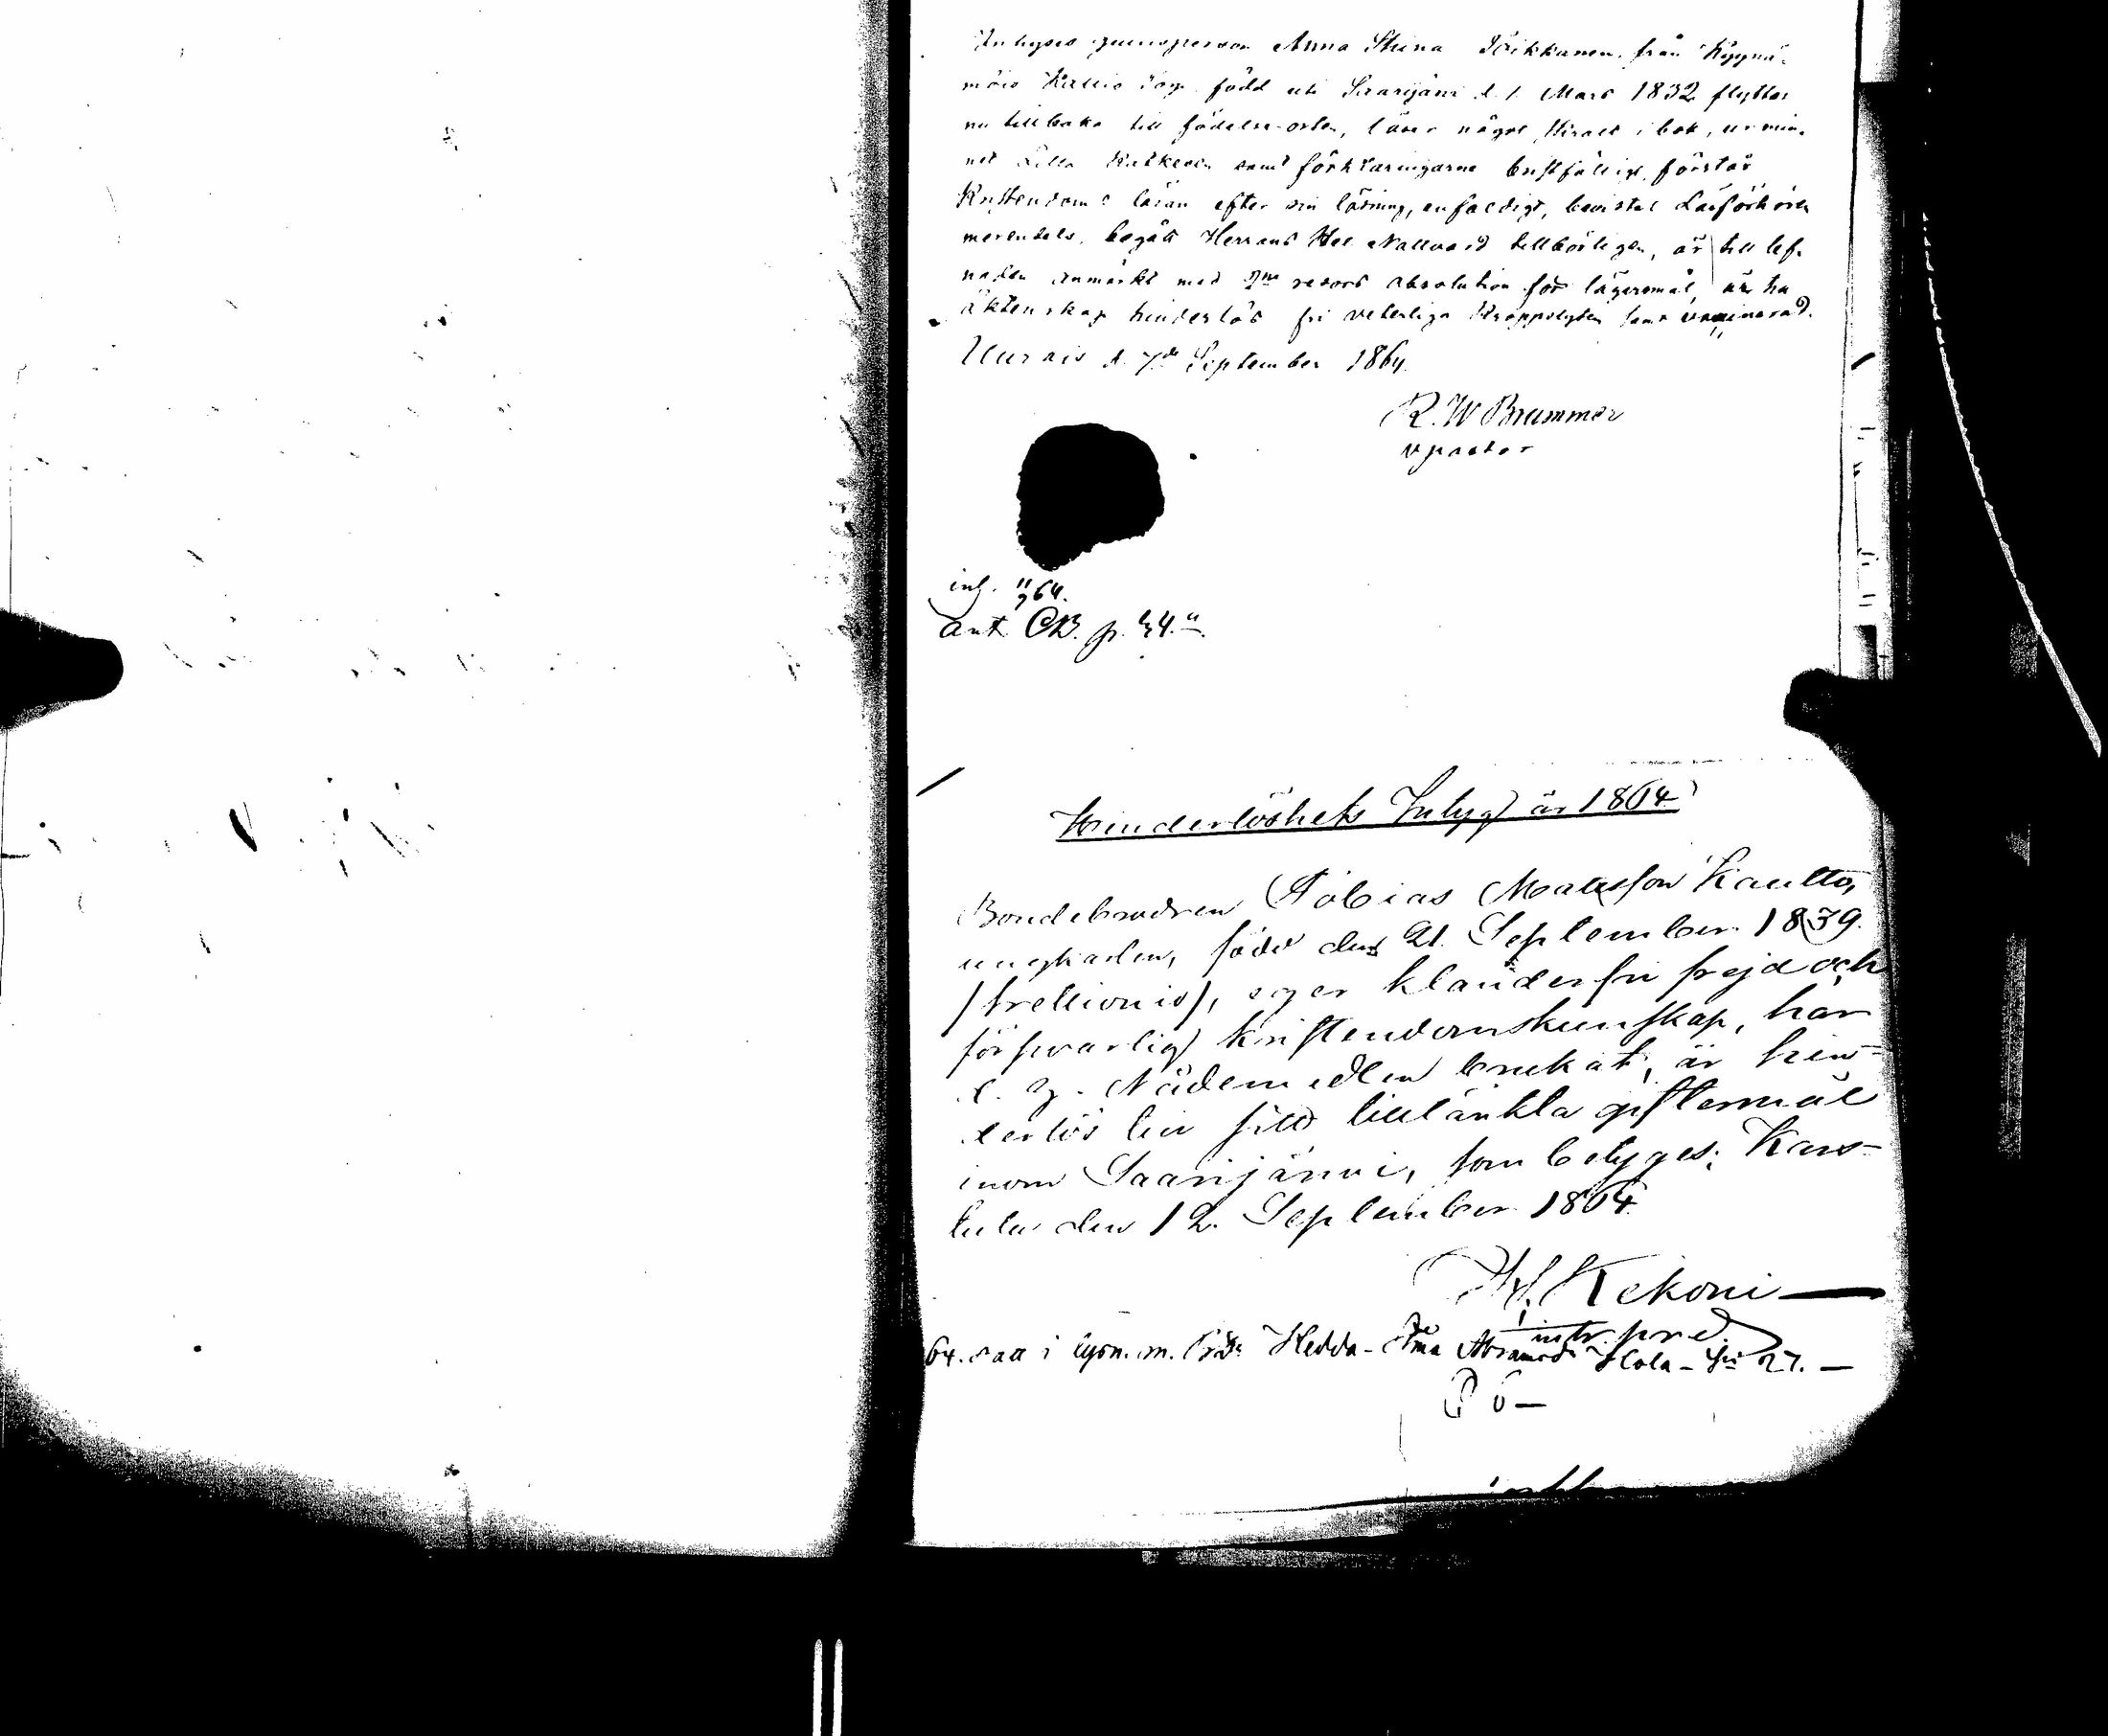 Inhyses qvinsperson Anna Stina Pöikkänen från Kypnä-
mäis Kallio Torp född uti Saarijärvi d. 1 Mars 1832 flyttar
nu tillbaka till födelse-orten, läser något svart i bok, ur min-
net Lilla Katkesen samt förklaringarne bristfälligt, förstår
Kristendoms läran efter sin läsning, enfaldigt, bevistat Läsförhören
merendels, begått Herrans Hel. Nattvard tillbörligen, är till lef-
naden anmärkt med resors absolution för lägersmål, är
äktenskap hinderlös fri veterliga Kroppslyten samt vaccinerad.
Uurais d. 7de September 1864.
R. W Brummer
v pastor
inl. 11/9 64.
ant CB. p. 34.
Hinderlöshets Intyg år 1864
Bondebrodren Tobias Matsson Kautto,
ungkarlen, född den 21. September 1839.
/trettionio/, eger klanderfri frejd och
försvarlig kristendomskunskap, har
l. g. Nådemedlen brukat, är hin-
derlös till sitt tilltänkta giftermål
inom Saarijärvi, som betyges; Kars-
tula den 12. September 1864.
Kekoni
64. i lysn. m. Hedda - Abramsd:r - 27. —